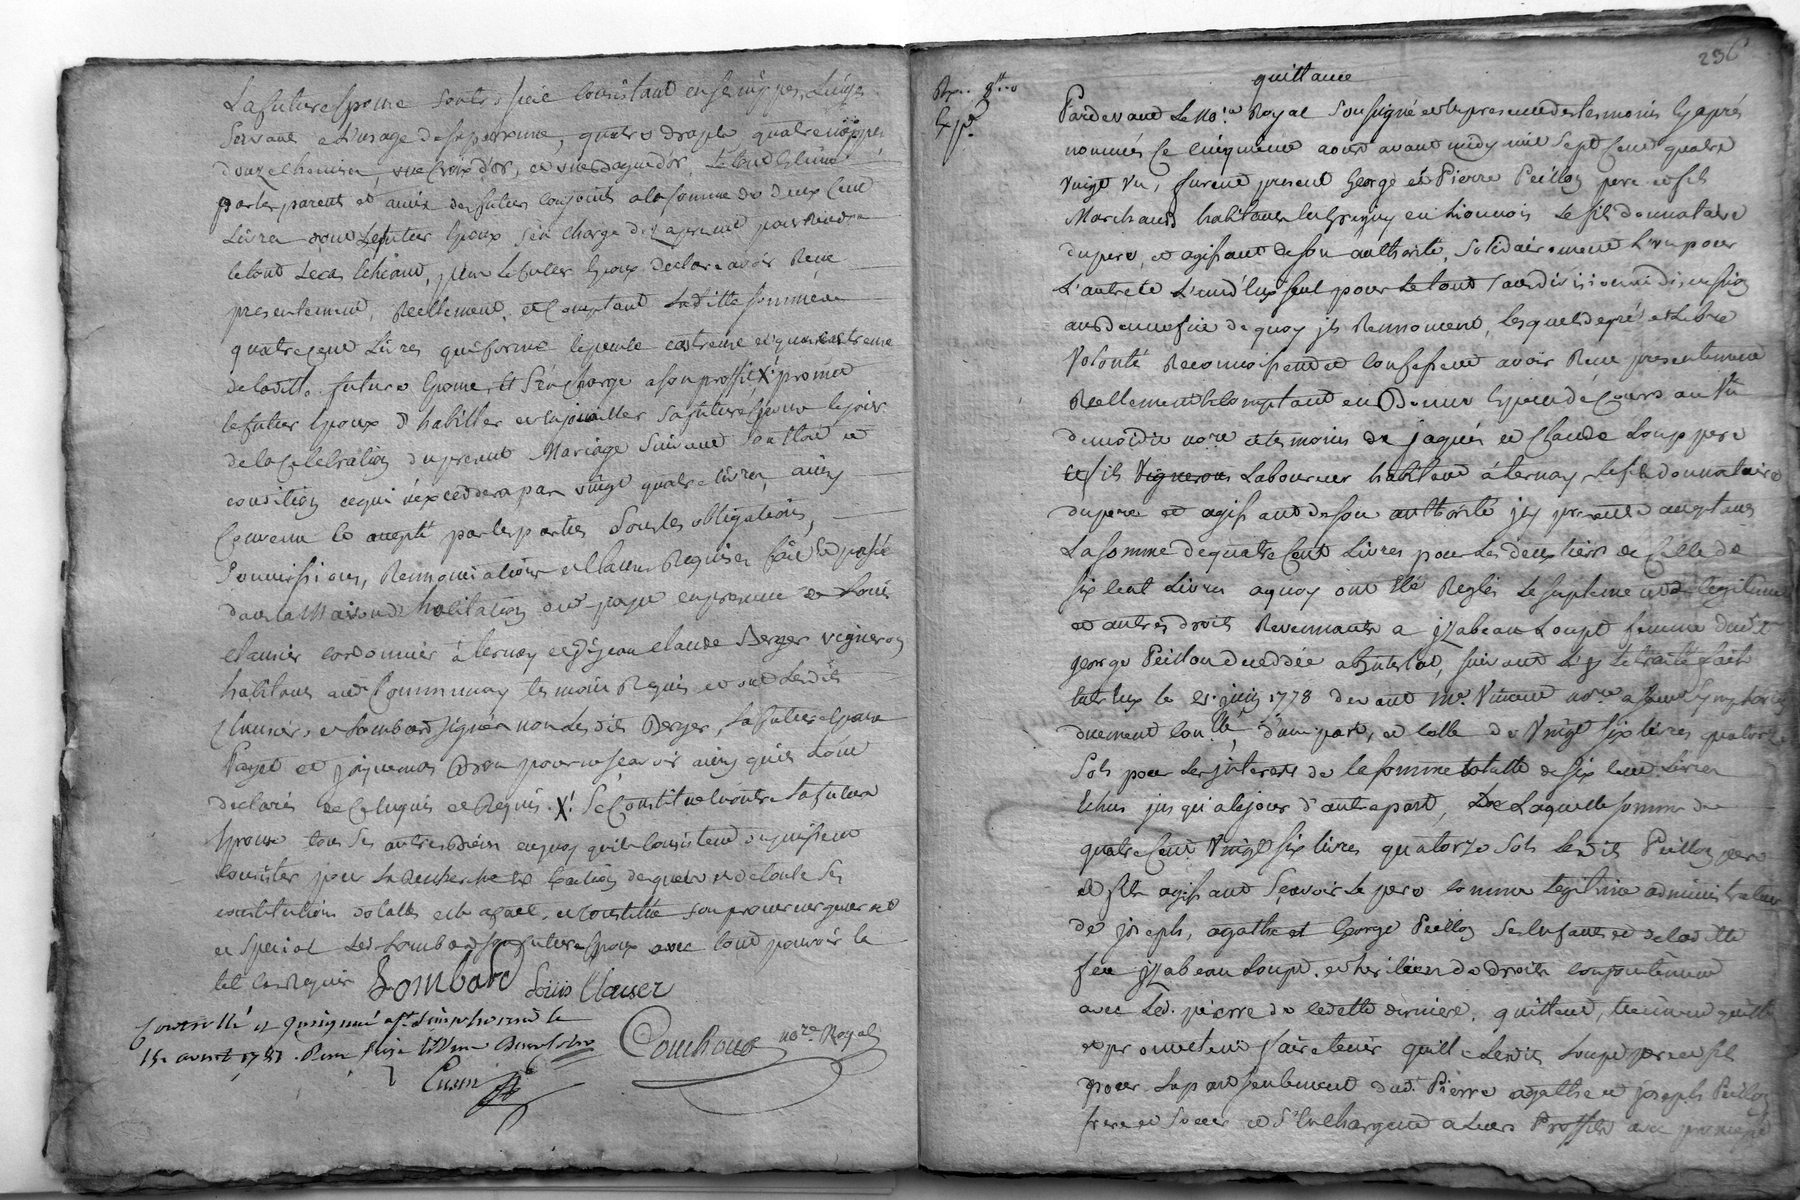 La future Epouse contre s
servant a l'usage de sa personne, quatre draps quatre nappes
douze chemises, une Croix d'or, et une bague d'or, le tout Estimé
par les parents et amis des futurs conjoints a la somme de deux Cent
Livres dont le futur Epoux s'en charge
le tout le cas Echeant, plus le futur Epoux declare avoir Reçu
presentement, Reellement, et Comptant laditte somme de
quatre Cent Livres
de laditte future Epouse, Et s'en charge a son proffit X! promet
le futur Epoux d'habiller et Enjoualler sa future Epouse le jour
de la Celebration du present Mariage Suivant son Etat et
condition ce qui n'excedera pas vingt quatre livres, ainsy
Convenu le accepté par les parties sous les obligations,
Soumissions, Rennonciations et Clauses Requises fait et passé
dans la Maison d'habitation en presence de Louis
Clausier cordonnier à ternay et de jean claude Berger vigneron
habitants aud. Communnay temoins Requis et ont lesdits
Clausier, et Lombard signés non ledit Berger, la future Epouse
Payet et pour ne sçavoir ainsy qu'ils l'ont
declaré de Ce Enquis et Requis. X! Se Constitue encontre la future
Epouse tous ses autres biens en quoy qu'ils Consistent ou puissent
consister pour la recherche et Exaction desquels et de toute sa
constitution dotalle elle a fait, et constitué son procureur general
et Special led. Lombard son future Epoux avec tout pouvoir la
tel Cas Requis Lombard Louis Clauser
Controllé et a St. Simphorien le
15e aoust 1781.
Couchoud no.re Royal
296
quittance
Exp.
Pardevant Le No.re Royal soussigné et En presence des temoins Cy après
nommés Ce cinquieme aoust avant midy mil sept Cent quatre
vingt un, furent present George et Pierre Peillon pere et fils
Marchands habitants en Lionnois le fils donnataire
du pere, et agissant de son authorité, solidairement l'un pour
L'autre et l'un d'Eux seul pour le tout sans division ni discussion
au beneffice de quoy ils Rennoncent, Lesquels de gré et Libre
Volonté Reconnoissent et Confessent avoir Reçu presentement
Reellement et Comptant en Bonnes Especes de Cours au Vu
de moi dit no.re et temoins de jaques et Claude Loup pere
et fils Vignerons Laboureur habitant à ternay le fils donnataire
du pere et agissant de son authorité icy present et acceptans
La somme de quatre Cent Livres pour les deux tiers de Celle de
six Cent Livres a quoy ont Eté Reglés le suplement de legitime
et autres droits Revennants a jzabeau Loup femme dudit
george Peillon decedée ab intestat, suivant le traité fait
entr'eux le 21. juin 1778 devant Me. Vincent no.re a saint Symphorien
duement con.llé, d'une part, et Celle de Vingt six livres quatorze
Sols pour les jnterets de la somme totalle de six Cent Livres
Echus jusqu'a ce jour d'autre part, De Laquelle somme de
quatre Cent Vingt six livres quatorze Sols lesdits Peillon pere
et fils agissant sçavoir le pere comme legitime administrateur
de joseph, agathe et George Peillon ses Enfants et de laditte
feu jzabeau Loup et heritiers de droits conjointement
avec led. pierre de ladette derniere, quittent, tiennent quitte
et promettent faire tenir quitte lesdits Loup pere et fils
pour la part seulement dud. Pierre agathe et joseph Peillon
frere et soeur et s'En chargent a Leurs Proffits avec promesse